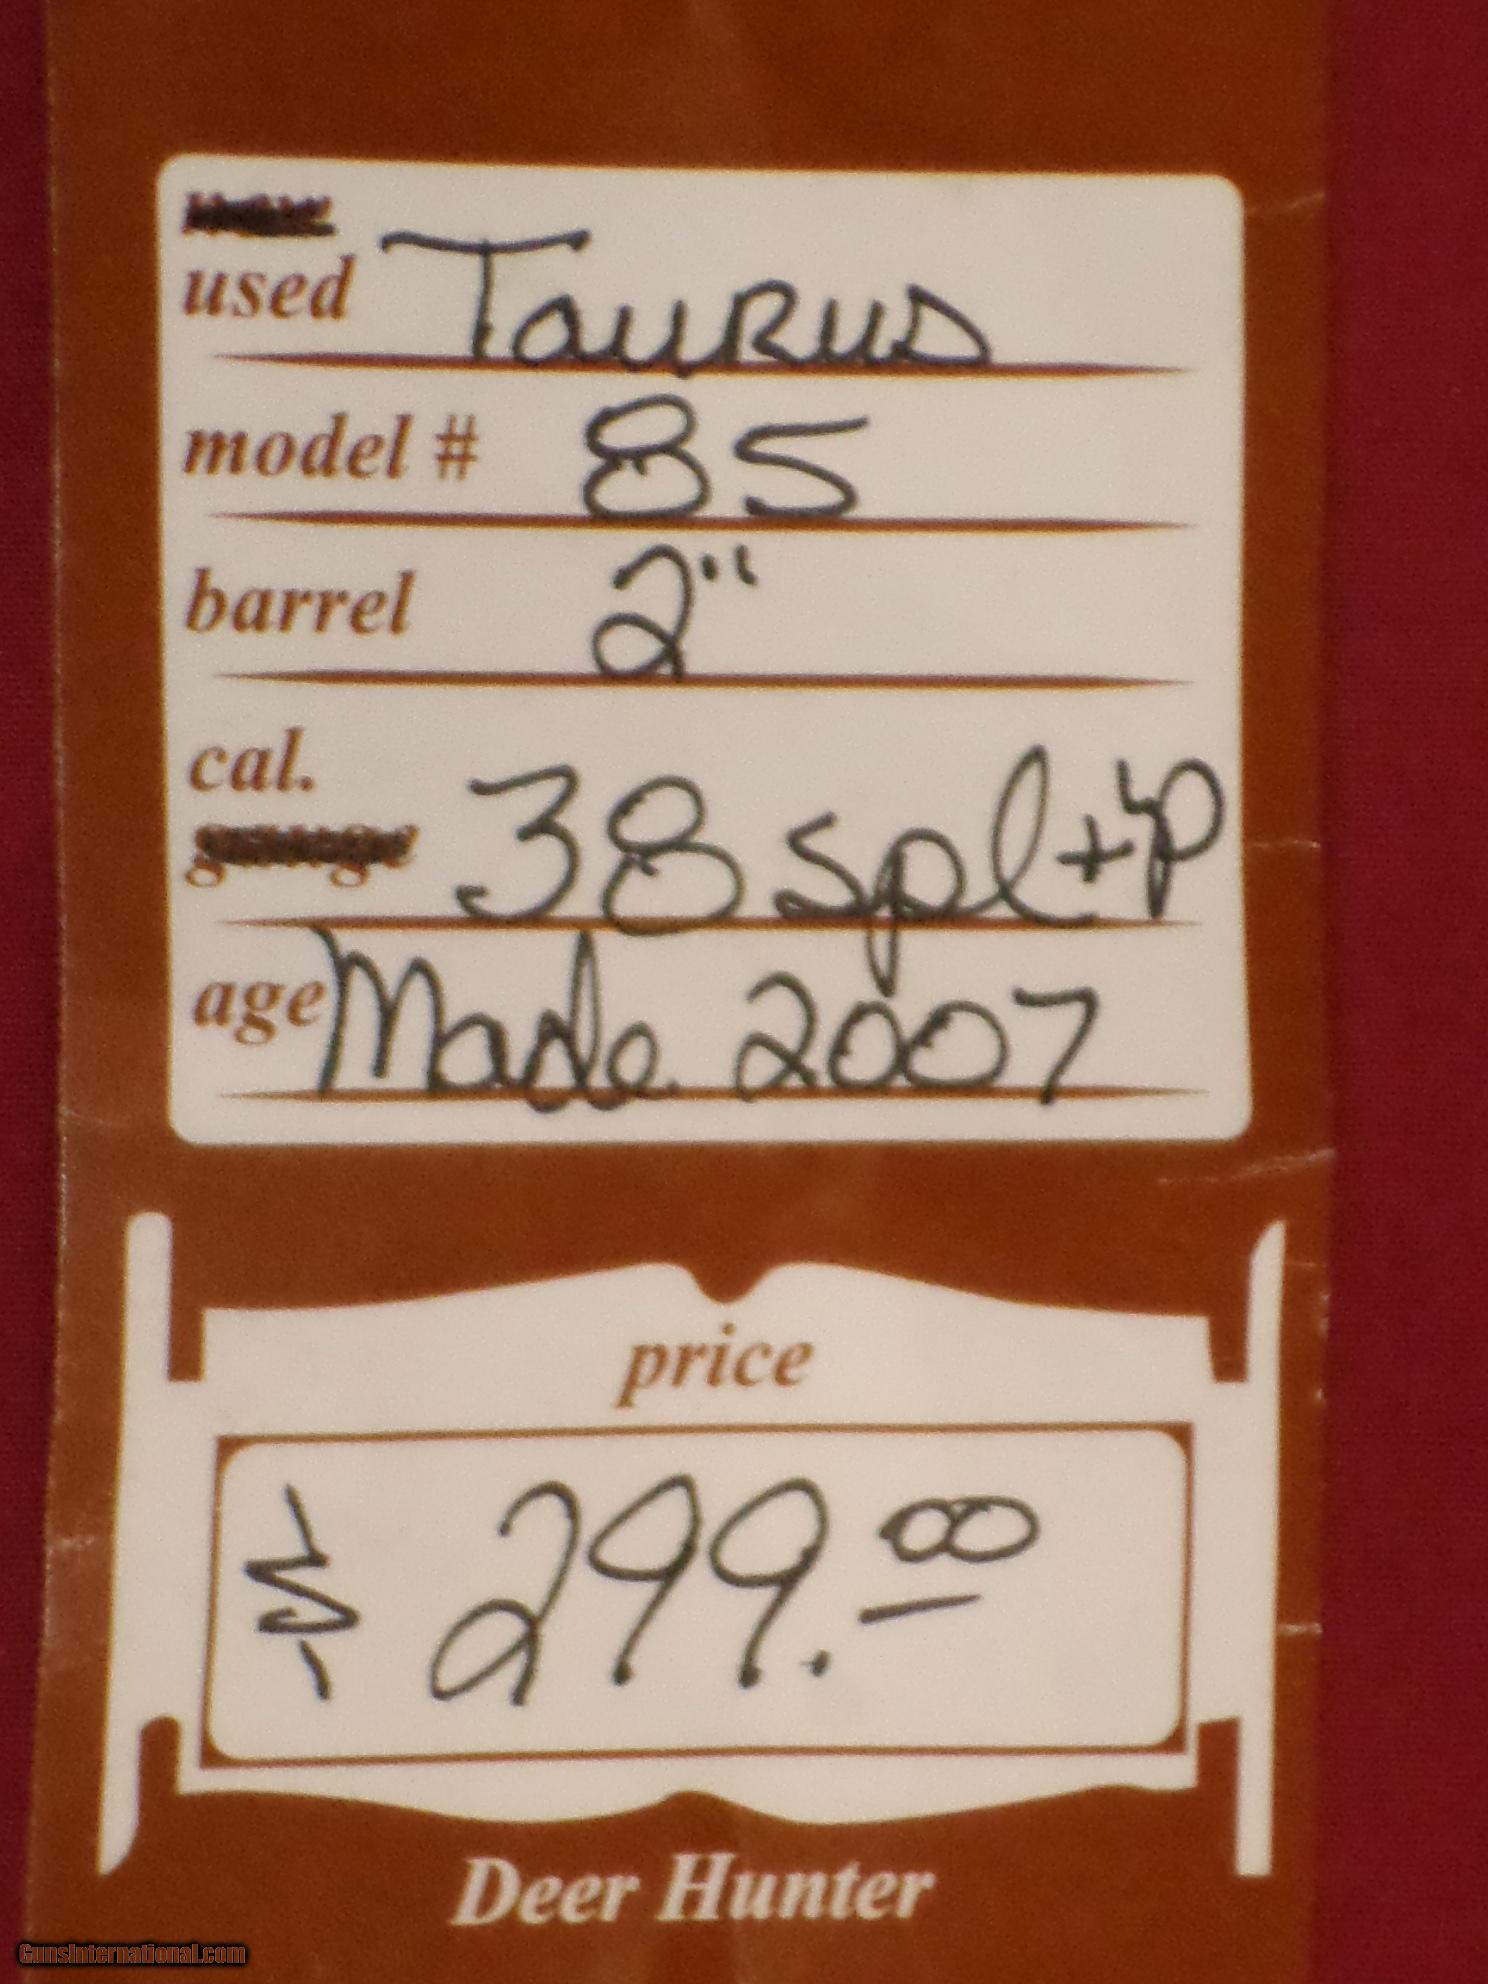 used Taurus
model # 85
barrel 2"
cal. 38 spl +P
age Made 2007
price
$ 299.00
Deer Hunter
GunsInternational.com